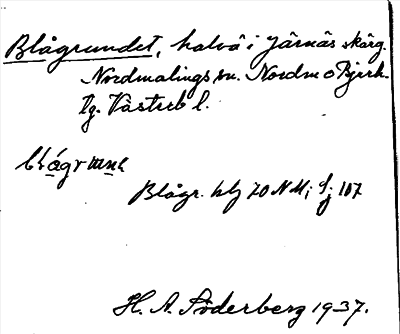 Blågrundet, halvö i Järnäs skärg.
Nordmalings sn. Nordm o Bjurh.
tg. Västerb l.
Blågr. blz 70 NM; Sj 107
H. A. Söderberg 1937.